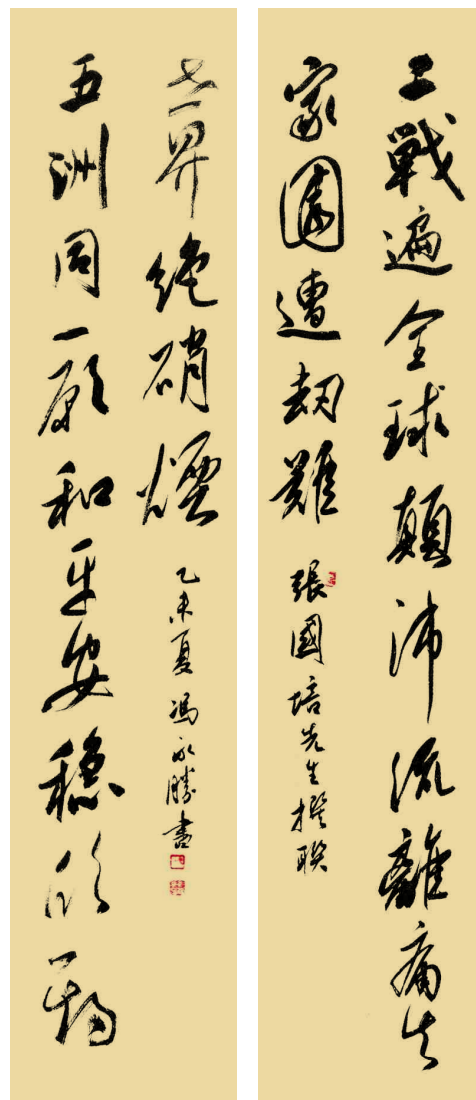 二戰遍全球顛沛流離痛失
家園遭劫難
張國培先生撰聯
五洲同一願和平安穩欣
世界絕硝煙
乙未夏 馮永勝書